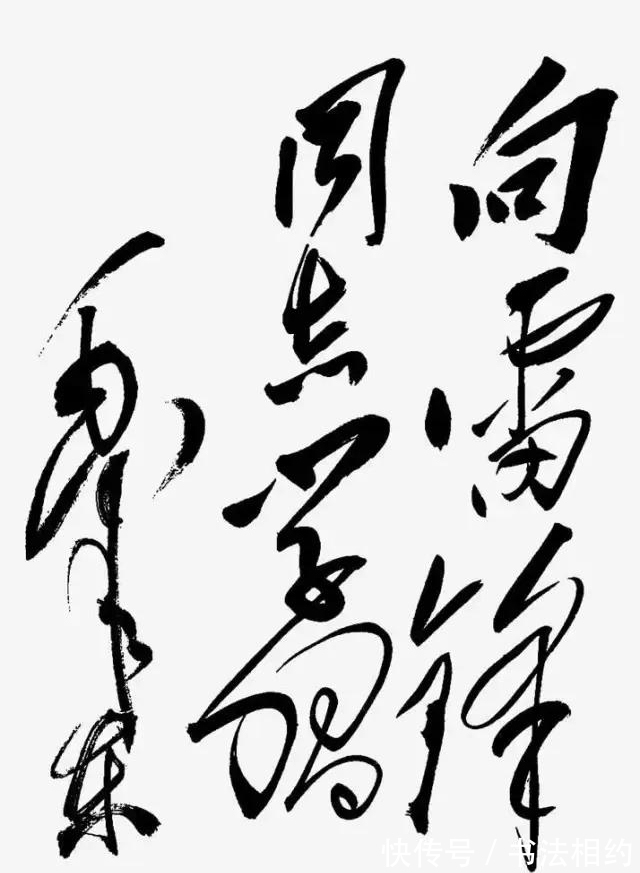 向雷锋
同志学习
毛泽东
快传号 / 书法相约